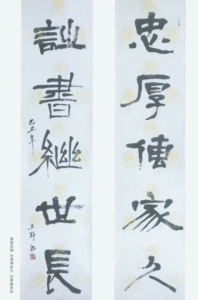 忠厚傳家久
詩書繼世長
己丑年